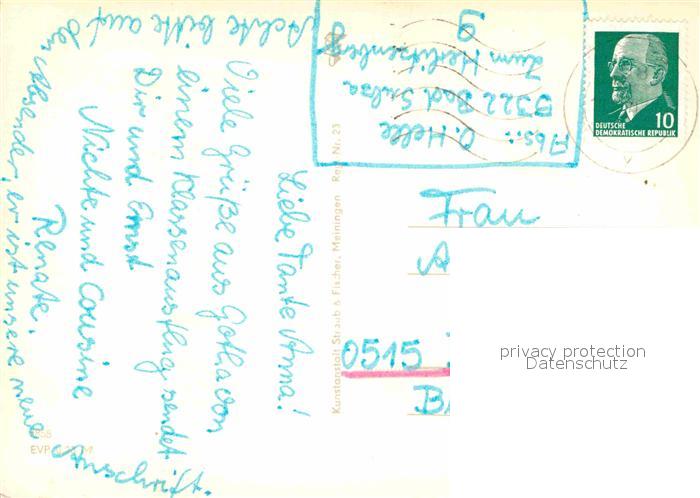 Liebe Tante Anna!
Viele Grüße aus Gotha von
einem Klassenausflug sendet
Dir und Ernst
Nichte und Cousine
Renate.
Achte bitte auf
den Absender, er ist unsere neue
Anschrift.
Abs.: O. Helle
5322 Bad Sulza
Zum Herlitzenberg
9
DEUTSCHE
DEMOKRATISCHE REPUBLIK
10
Frau
A
0515
B
Kunstanstalt Straub & Fischer, Meiningen
Nr. 23
EVP
privacy protection
Datenschutz